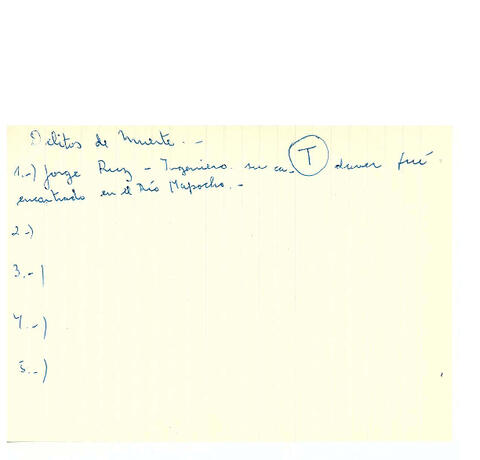 Delitos de Muerte. -
1.-) Jorge Ruz - Ingeniero. su ca- T daver fué
encontrado en el Río Mapocho. -
2.-)
3.-)
4.-)
5.-)